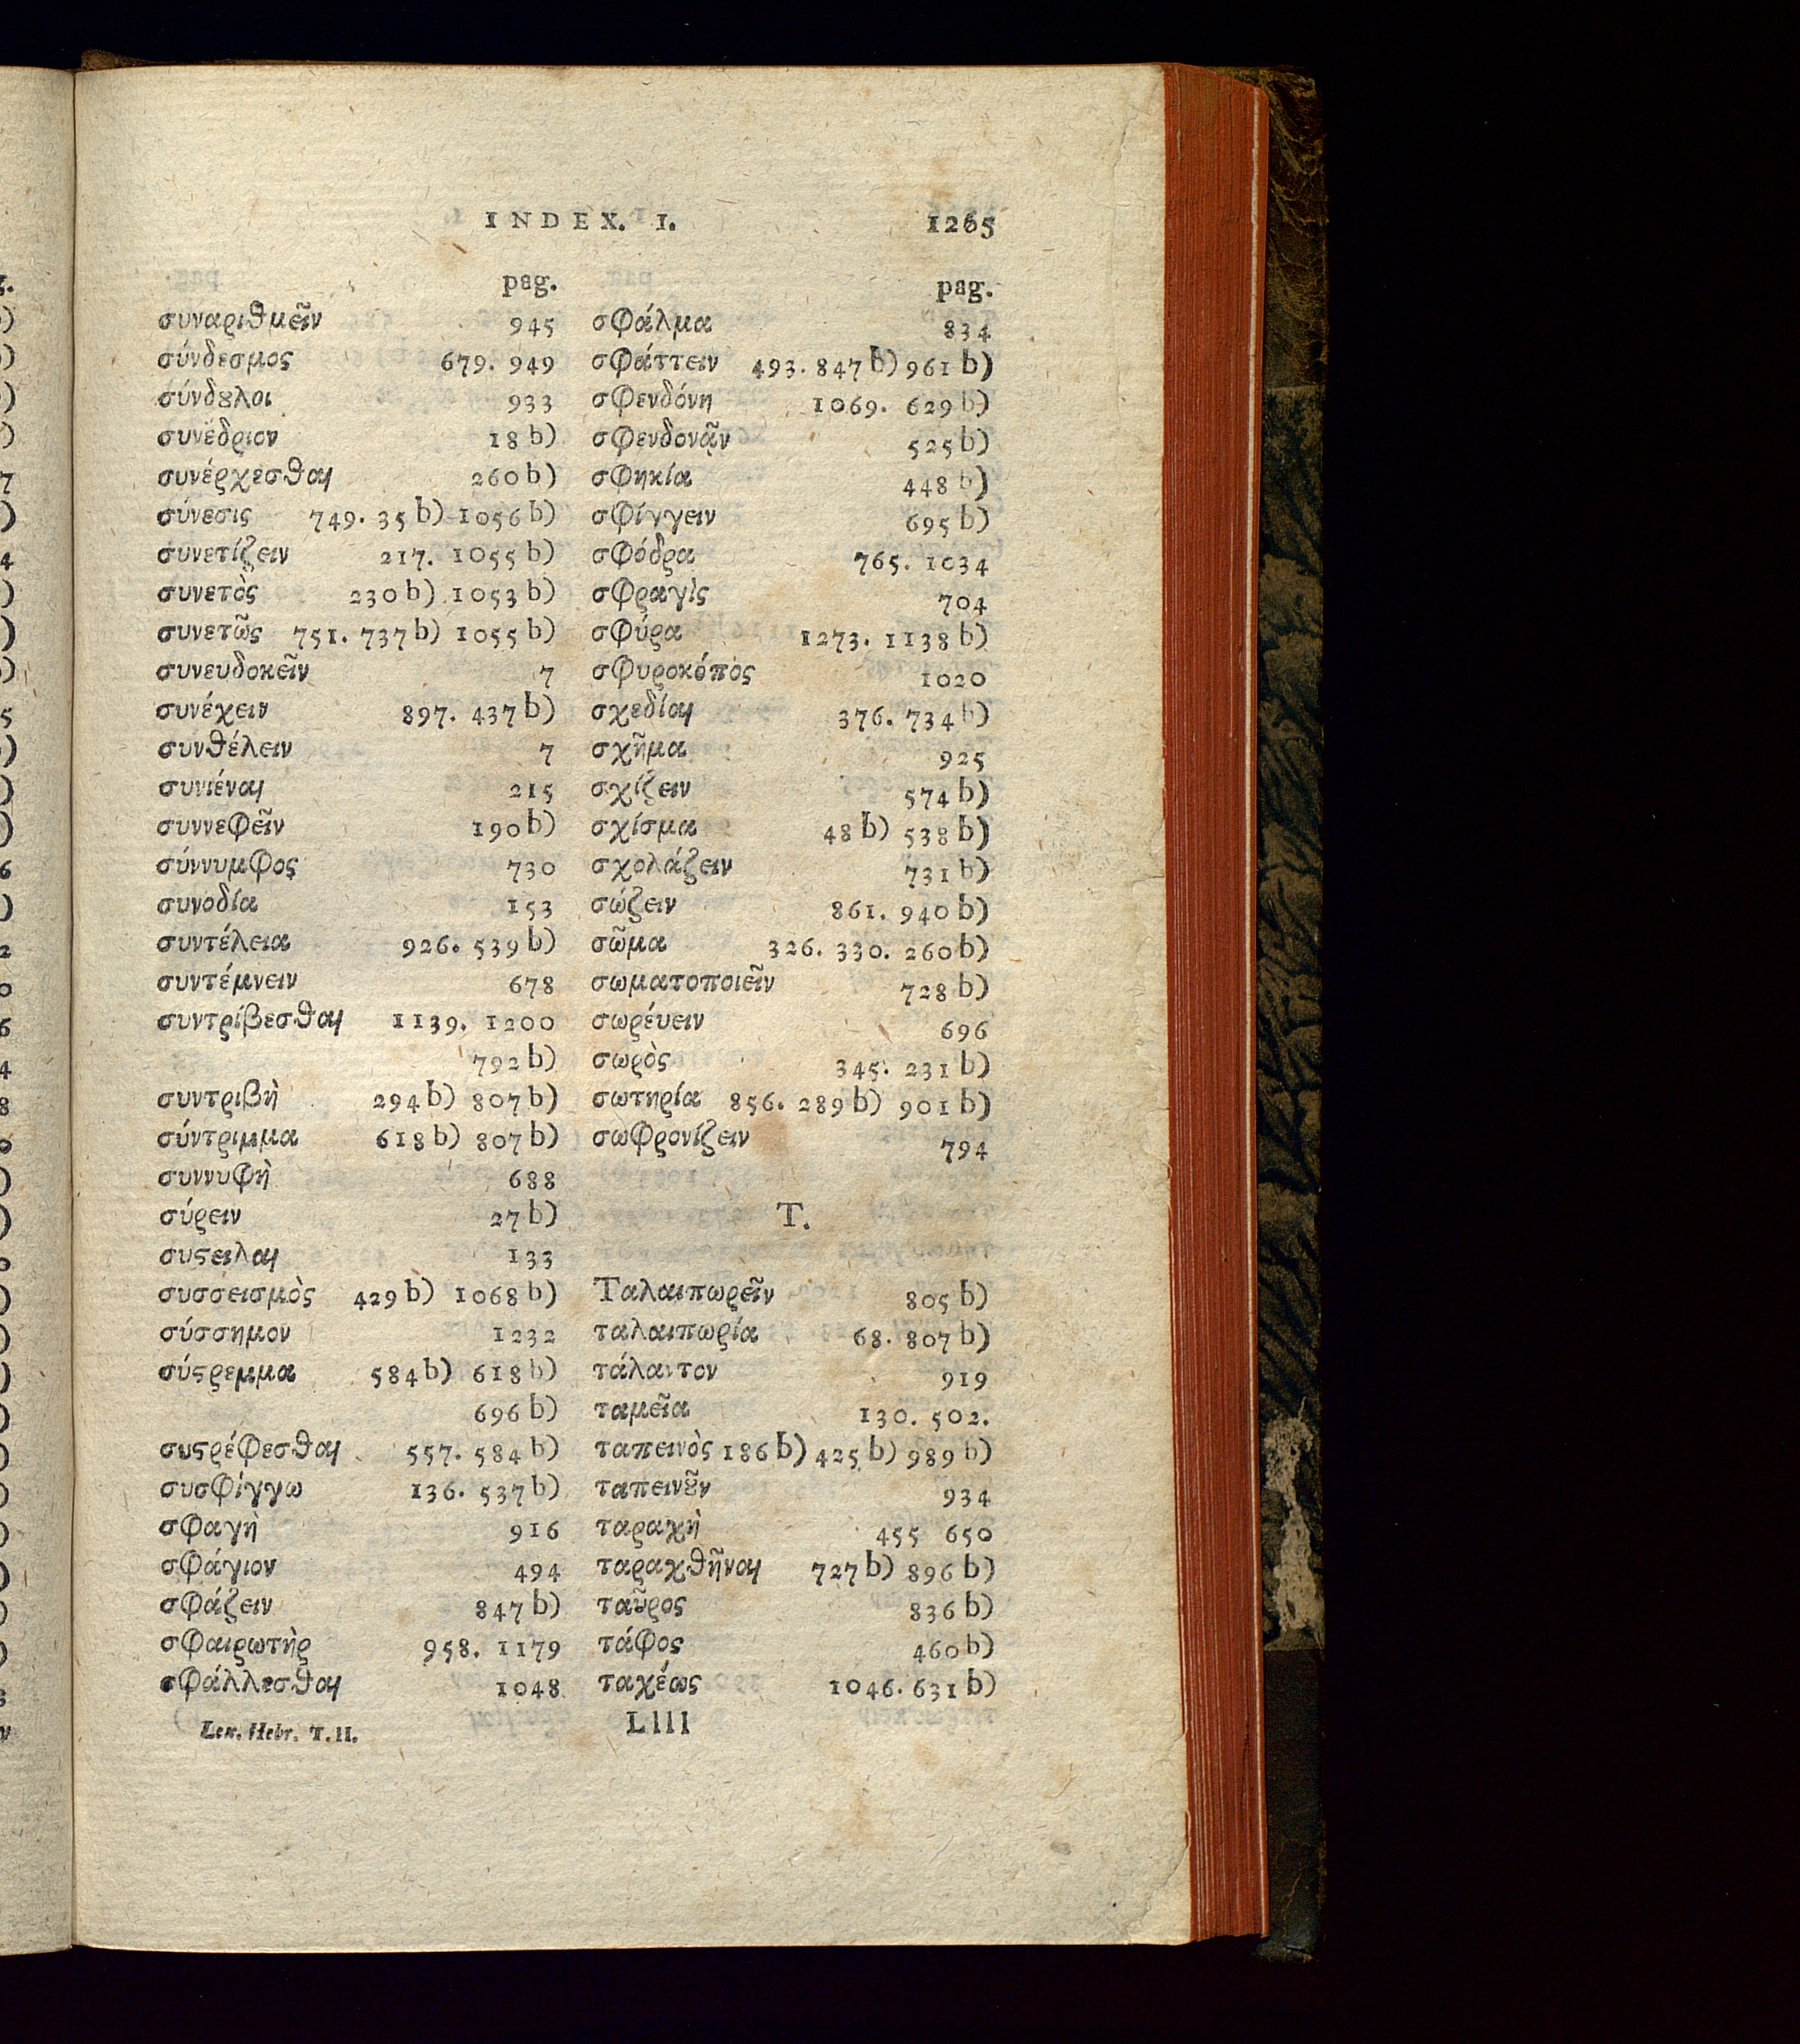 INDEX. I. 1265
pag.
συναριθμεῖν 945
σύνδεσμος 679. 949
σύνδȣλοι 933
συνέδριον 18 b)
συνέρχεσθαι 260 b)
σύνεσις 749. 35 b) 1056 b)
συνετίζειν 217. 1055 b)
συνετὸς 230 b) 1053 b)
συνετῶς 751. 737 b) 1055 b)
συνευδοκεῖν 7
συνέχειν 897. 437 b)
συνθέλειν 7
συνιέναι 215
συννεφεῖν 190 b)
σύννυμφος 730
συνοδία 153
συντέλεια 926. 539 b)
συντέμνειν 678
συντρίβεσθαι 1139. 1200
792 b)
συντριβὴ 294 b) 807 b)
σύντριμμα 618 b) 807 b)
συννυφὴ 688
σύρειν 27 b)
συϛειλαι 133
συσσεισμὸς 429 b) 1068 b)
σύσσημον 1232
σύϛρεμμα 584 b) 618 b)
696 b)
συϛρέφεσθαι 557. 584 b)
συσφίγγω 136. 537 b)
σφαγὴ 916
σφάγιον 494
σφάζειν 847 b)
σφαιρωτὴρ 958. 1179
σφάλλεσθαι 1048
pag.
σφάλμα 834
σφάττειν 493. 847 b) 961 b)
σφενδόνη 1069. 629 b)
σφενδονᾷν 525 b)
σφηκία 448 b)
σφίγγειν 695 b)
σφόδρα 765. 1034
σφραγὶς 704
σφύρα 1273. 1138 b)
σφυροκόπος 1020
σχεδίαι 376. 734 b)
σχῆμα 925
σχίζειν 574 b)
σχίσμα 48 b) 538 b)
σχολάζειν 731 b)
σώζειν 861. 940 b)
σῶμα 326. 330. 260 b)
σωματοποιεῖν 728 b)
σωρέυειν 696
σωρὸς 345. 231 b)
σωτηρία 856. 289 b) 901 b)
σωφρονίζειν 794
T.
Ταλαιπωρεῖν 805 b)
ταλαιπωρία 68. 807 b)
τάλαντον 919
ταμεῖα 130. 502.
ταπεινὸς 186 b) 425 b) 989 b)
ταπεινȣ͂ν 934
ταραχὴ 455 650
ταραχθῆναι 727 b) 896 b)
ταῦρος 836 b)
τάφος 460 b)
ταχέως 1046. 631 b)
Lex. Hebr. T. II. Llll